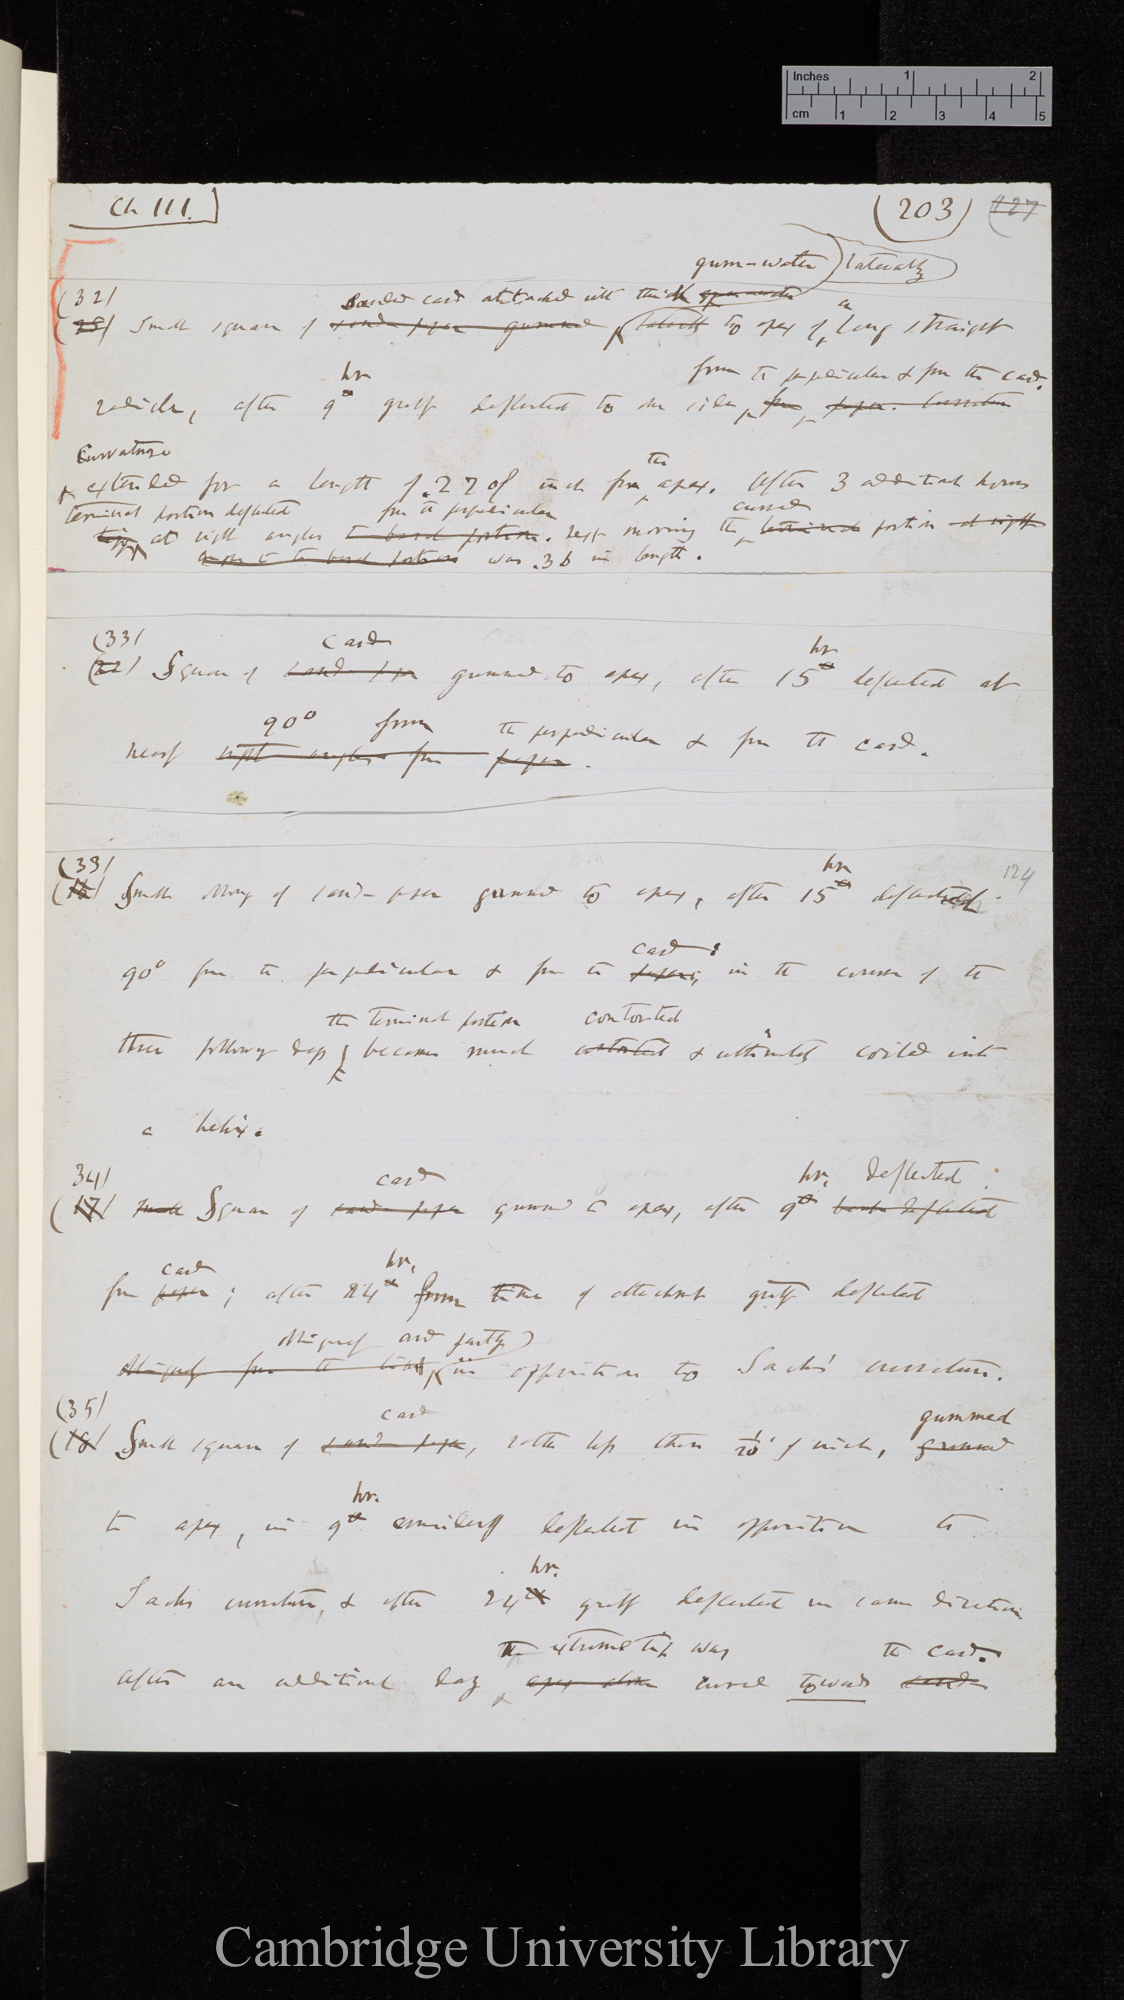 Inches 1 2
cm 1 2 3 4 5
Ch III.
(203) 127
gum-water laterally
(32)
Sanded card attached with thick gum-water an
Small square of sand-paper gummed laterally to apex of long straight
hr from the perpendicular & from the card.
radicle, after 9 greatly deflected to one side, from paper. Curvature
Curvature
the
extended for a length of .22 of inch from apex. After 3 additional hours
terminal portion deflected from the perpendicular curved
at right angles to basal portion. next morning the terminal portion at right
angles to the basal portion was .36 in length.
(33) card hr
(22) Square of sand-paper gummed to apex, after 15 deflected at
90° from the perpendicular & from the card.
nearly right angles from paper.
(33) hr 124
(16) Small oblong of sand-paper gummed to apex, after 15 deflected
card;
90° from the perpendicular & from the paper; in the course of the
the terminal portion contorted
three following days became much contorted & ultimately coiled into
a helix.
34) card hr. deflected
(17) Small Square of sand-paper gummed to apex, after 9 deflected
card hr.
from paper; after 24 from time of attachment greatly deflected
obliquely and partly
obliquely from the in opposition to Sachs' curvature.
(35) card gummed
(18) Small square of sand-paper, rather less than 1/20 of inch, gummed
hr.
to apex, in 9 considerably deflected in opposition to
hr.
Sachs curvature, & after 24 greatly deflected in same direction
the extreme tip was the card.
after an additional day apex alone curved towards
Cambridge University Library